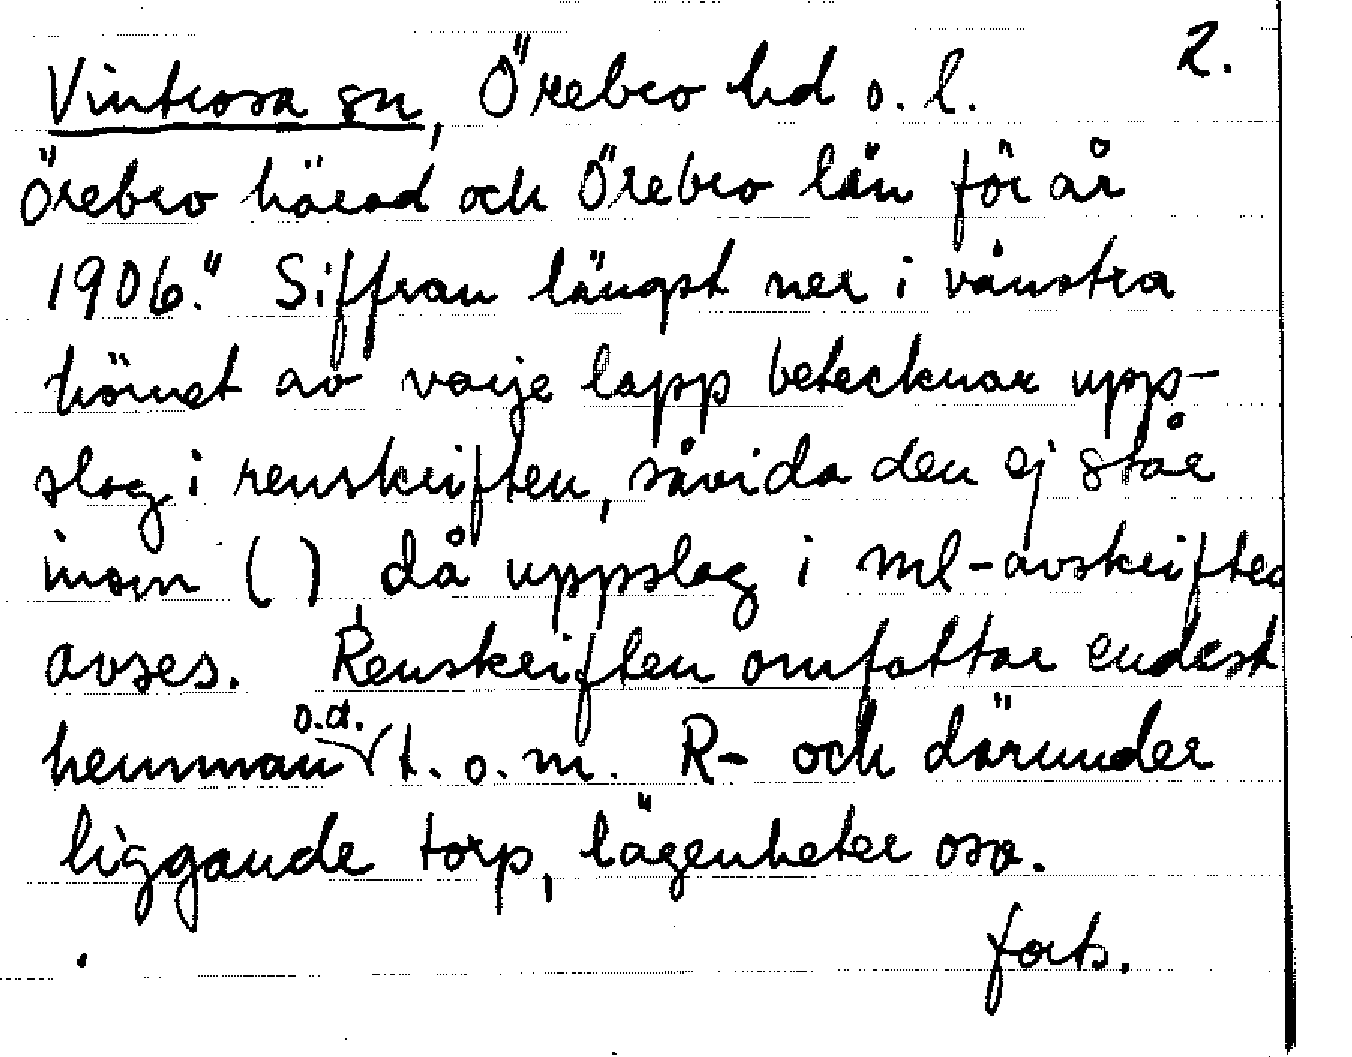 2.
Vintrosa sn, Örebro hd o. l.
Örebro härad och Örebro län för år
1906." Siffran längst ner i vänstra
hörnet av varje lapp betecknar upp-
slag i renskriften, såvida den ej står
inom ( ) då uppslag i ml-avskriften
avses. Renskriften omfattar endast
o.d.
hemman (t. o. m. R- och därunder
liggande torp, lägenheter osv.
forts.